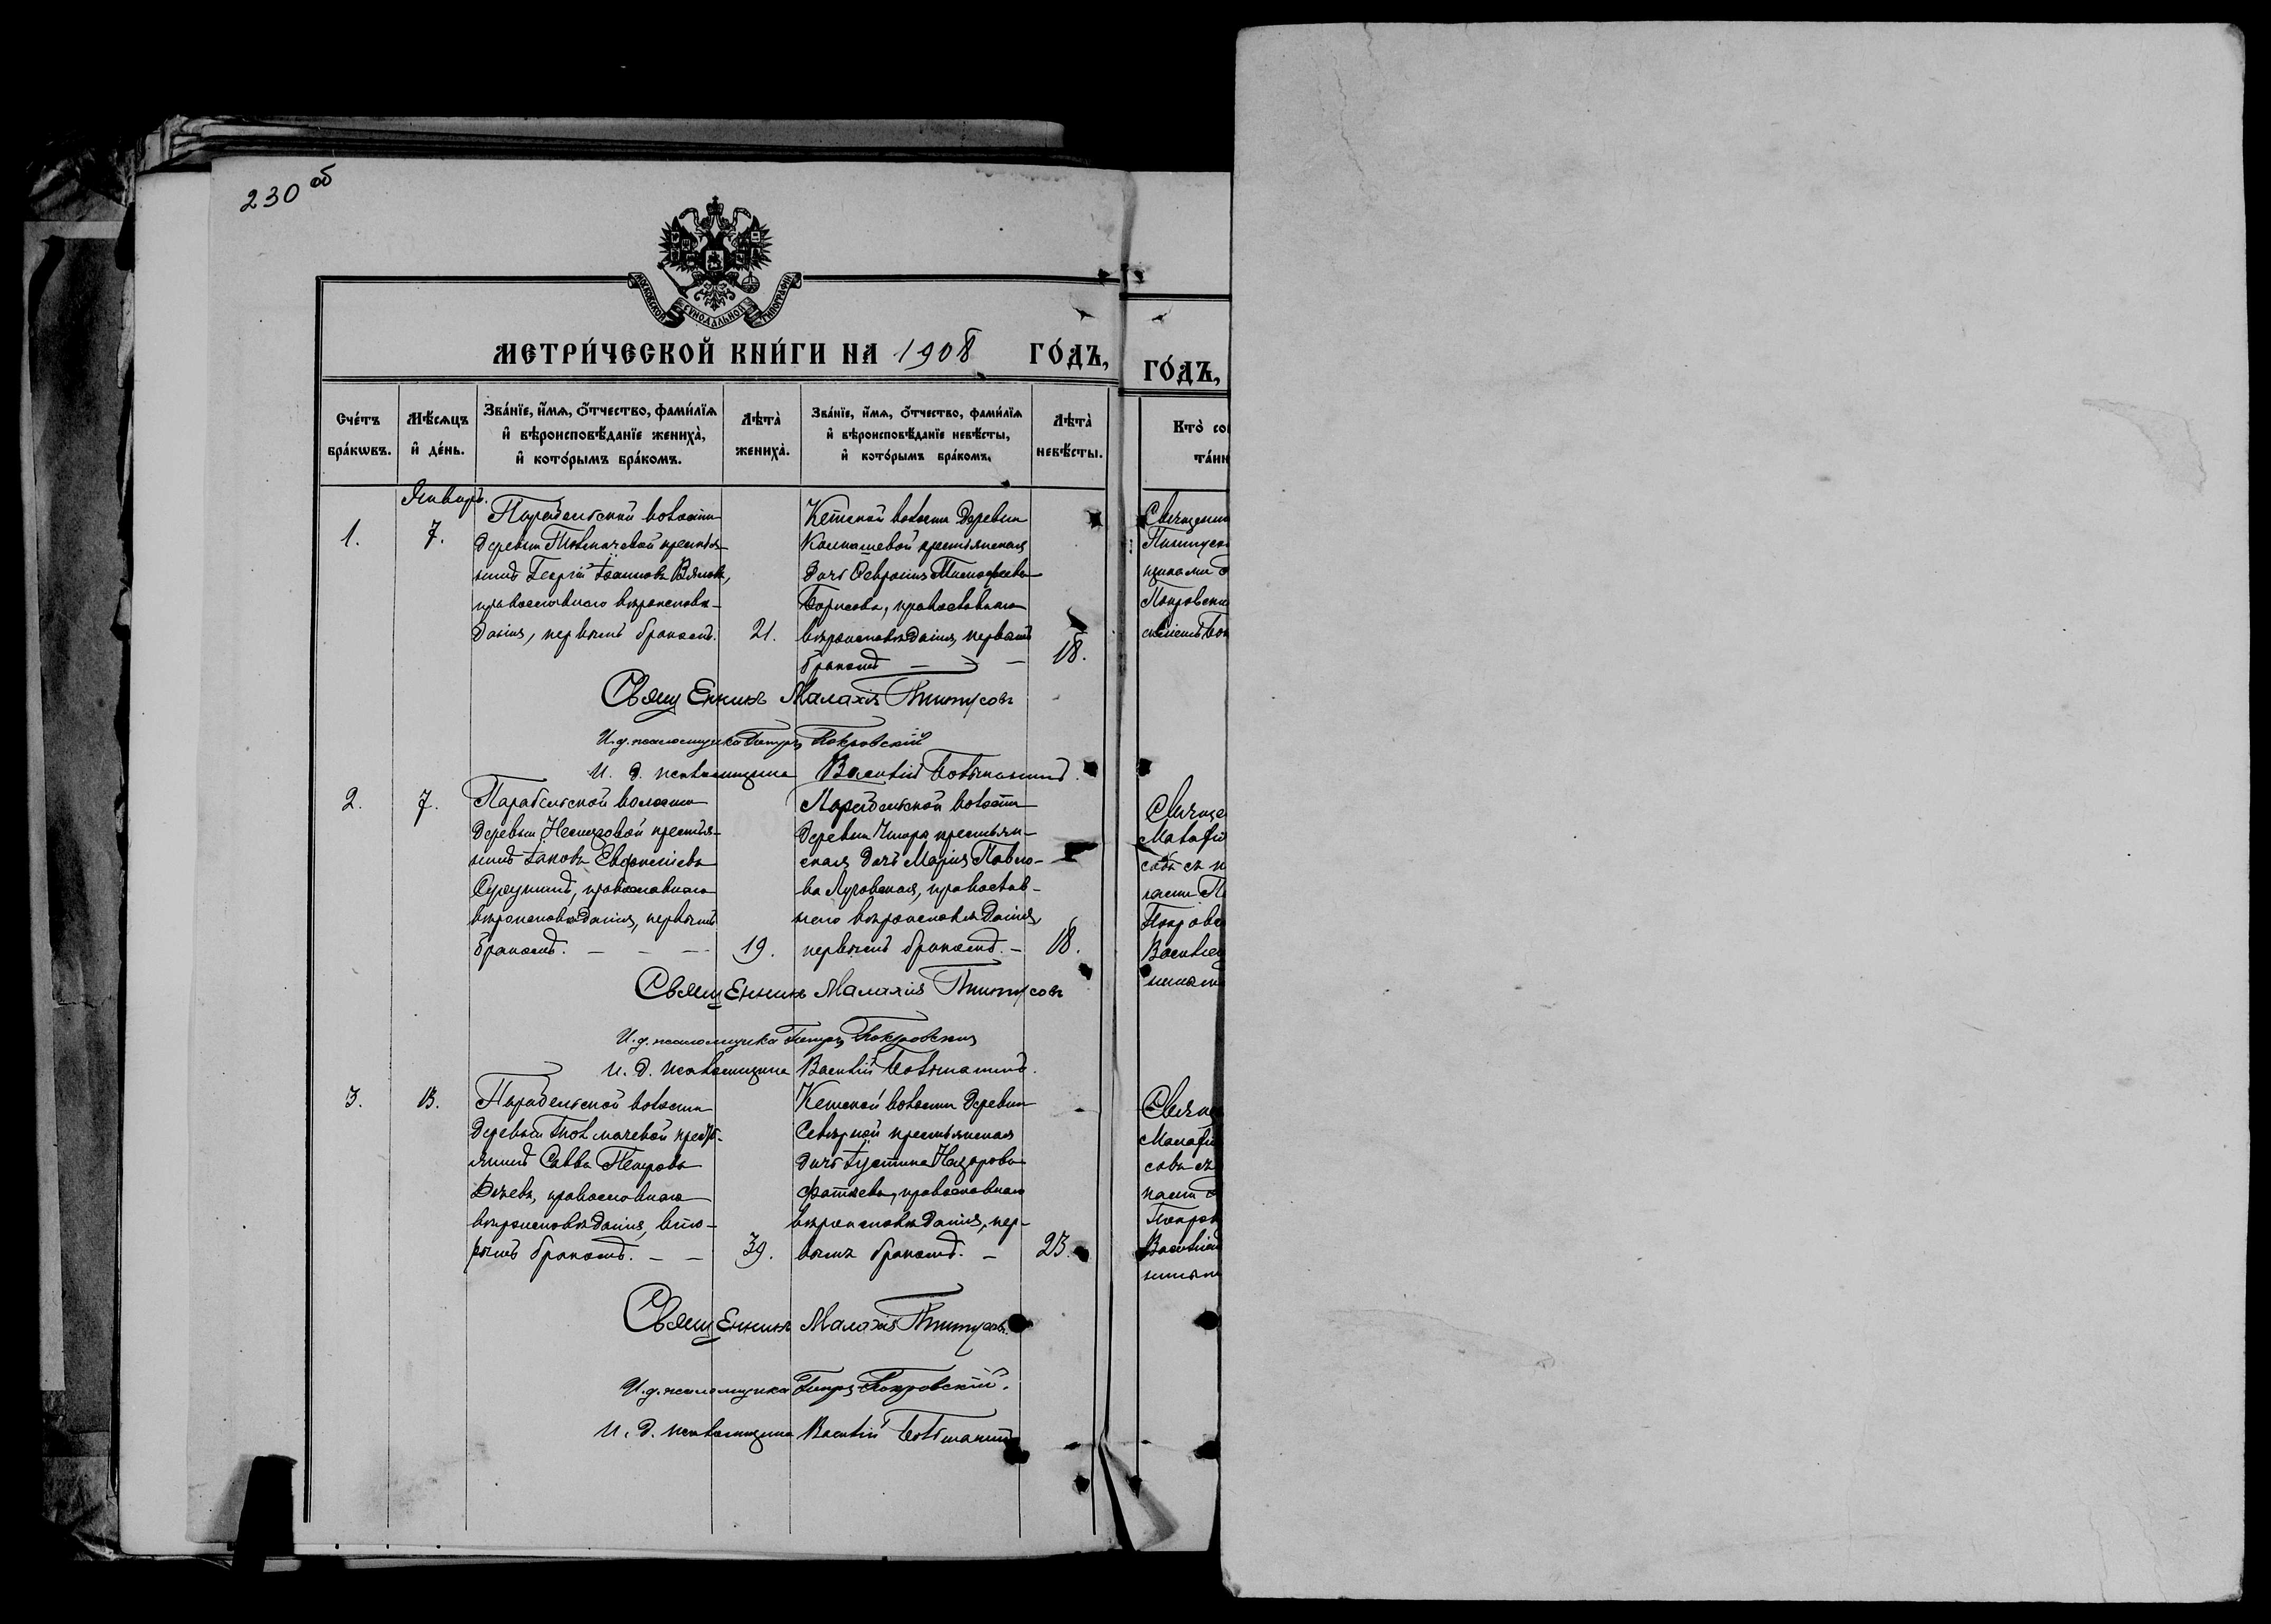 230 об
МОСКОВСКОЙ СѴНОДАЛЬНОЙ ТИПОГРАФІИ
МЕТРИ́ЧЕСКОЙ КНИ́ГИ НА 1908 ГО́ДЪ,
ГО́ДЪ,
Сче́тъ бра́кѡвъ.
Мѣ́сѧцъ и҆ де́нь.
Зва́нїе, и҆́мѧ, ѻ҆́тчество, фами́лїѧ
и҆ вѣроисповѣ́данїе женихà,
и҆ кото́рымъ бра́комъ.
Лѣтà женихà.
Зва́нїе, и҆́мѧ, ѻ҆́тчество, фами́лїѧ
и҆ вѣроисповѣ́данїе невѣ́сты,
и҆ кото́рымъ бра́комъ.
Лѣтà невѣ́сты.
Январь.
1.
7.
Парабельской волости
деревни Толмачевой крестья-
нинъ Георгій Іоанновъ Вяловъ,
православнаго вѣроисповѣ-
данія, первымъ бракомъ.
21.
Кетской волости деревни
Колпашевой крестьянская
дочь Феврапія
Борисова, православнаго
вѣроисповѣданія, первымъ
бракомъ
18.
Священникъ Малахія Титусовъ
И. д. псаломщика Петръ Покровскій
И. д. псаломщика Василій
2.
7.
Парабельской волости
деревни крестья-
нинъ Іаковъ
православнаго
вѣроисповѣданія, первымъ
бракомъ.
19.
Парабельской волости
деревни Чигора крестьян-
ская дочь Марія Павло-
ва Луговская, православ-
наго вѣроисповѣданія,
первымъ бракомъ.
18.
Священникъ Малахія Титусовъ
И. д. псаломщика Петръ Покровскій
И. д. псаломщика Василій
3.
13.
Парабельской волости
деревни Толмачевой кресть-
янинъ Савва Петровъ
православнаго
вѣроисповѣданія, вто-
рымъ бракомъ.
39.
Кетской волости деревни
Сѣверной крестьянская
дочь Іустина Назарова
Фатѣева, православнаго
вѣроисповѣданія, пер-
вымъ бракомъ.
23.
Священникъ Малахія Титусовъ.
И. д. псаломщика Петръ Покровскій.
И. д. псаломщика Василій